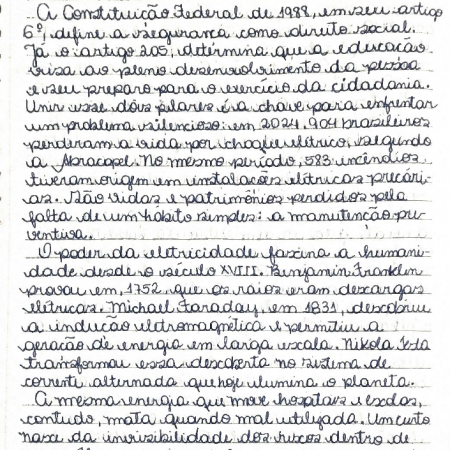 A Constituição Federal de 1988, em seu artigo
6º, define a segurança como direito social.
Já o artigo 205, determina que a educação
visa ao pleno desenvolvimento da pessoa
e seu preparo para o exercício da cidadania.
Unir esse dois pilares é a chave para enfrentar
um problema silencioso: em 2024, 904 brasileiros
perderam a vida por choque elétrico, segundo
a Abracopel. No mesmo período, 583 incêndios
tiveram origem em instalações elétricas precári-
as. São vidas e patrimônios perdidos pela
falta de um hábito simples: a manutenção pre-
ventiva.
O poder da eletricidade fascina a humani-
dade desde o século XVIII. Benjamin Franklin
provou em, 1752 que os raios eram descargas
elétricas. Michael Faraday, em 1831, descobriu
a indução eletromagnética e permitiu a
geração de energia em larga escala. Nikola Tesla
transformou essa descoberta no sistema de
corrente alternada que hoje ilumina o planeta.
A mesma energia que move hospitais e escolas,
contudo, mata quando mal utilizada. Um curto
nasce da invisibilidade dos riscos dentro de